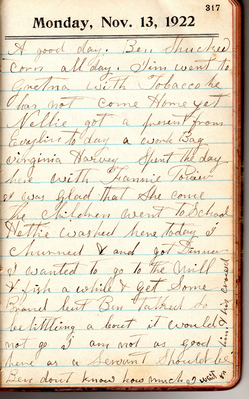 317
Monday, Nov. 13, 1922
A good day. Ben Shucked
corn all day. Jim went to
Gretna with Tobacco he
has not come Home yet
Nellie got a present from
Eveline to day a work Bag
Virginia Harvey Spent the day
here with Fannie
& was glad that She come
the Children went to School
Hettie washed here today I
Churned & and got Dinner
I wanted to go to the Mill
& fish a while & get Some
Brand but Ben talked so
be littling a bout it I would
not go I am not as good
here as a Servant Should be
Ben dont know how much I